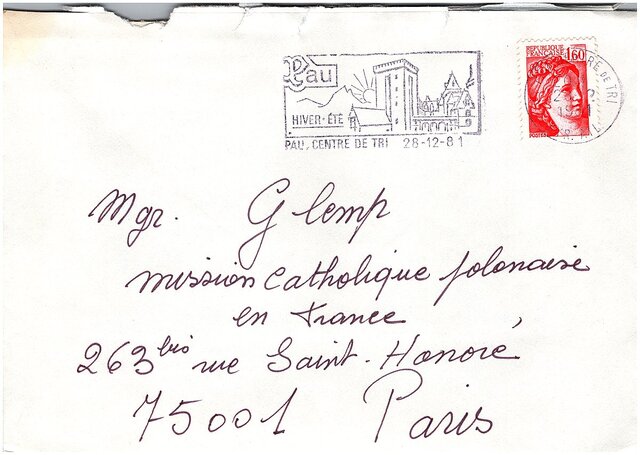 Pau
HIVER-ÉTÉ
PAU, CENTRE DE TRI 28-12-81
REPUBLIQUE
FRANÇAISE 1,60
POSTES
RE DE TRI
Mgr. Glemp
mission catholique polonaise
en France
263 bis rue Saint-Honoré
75001 Paris